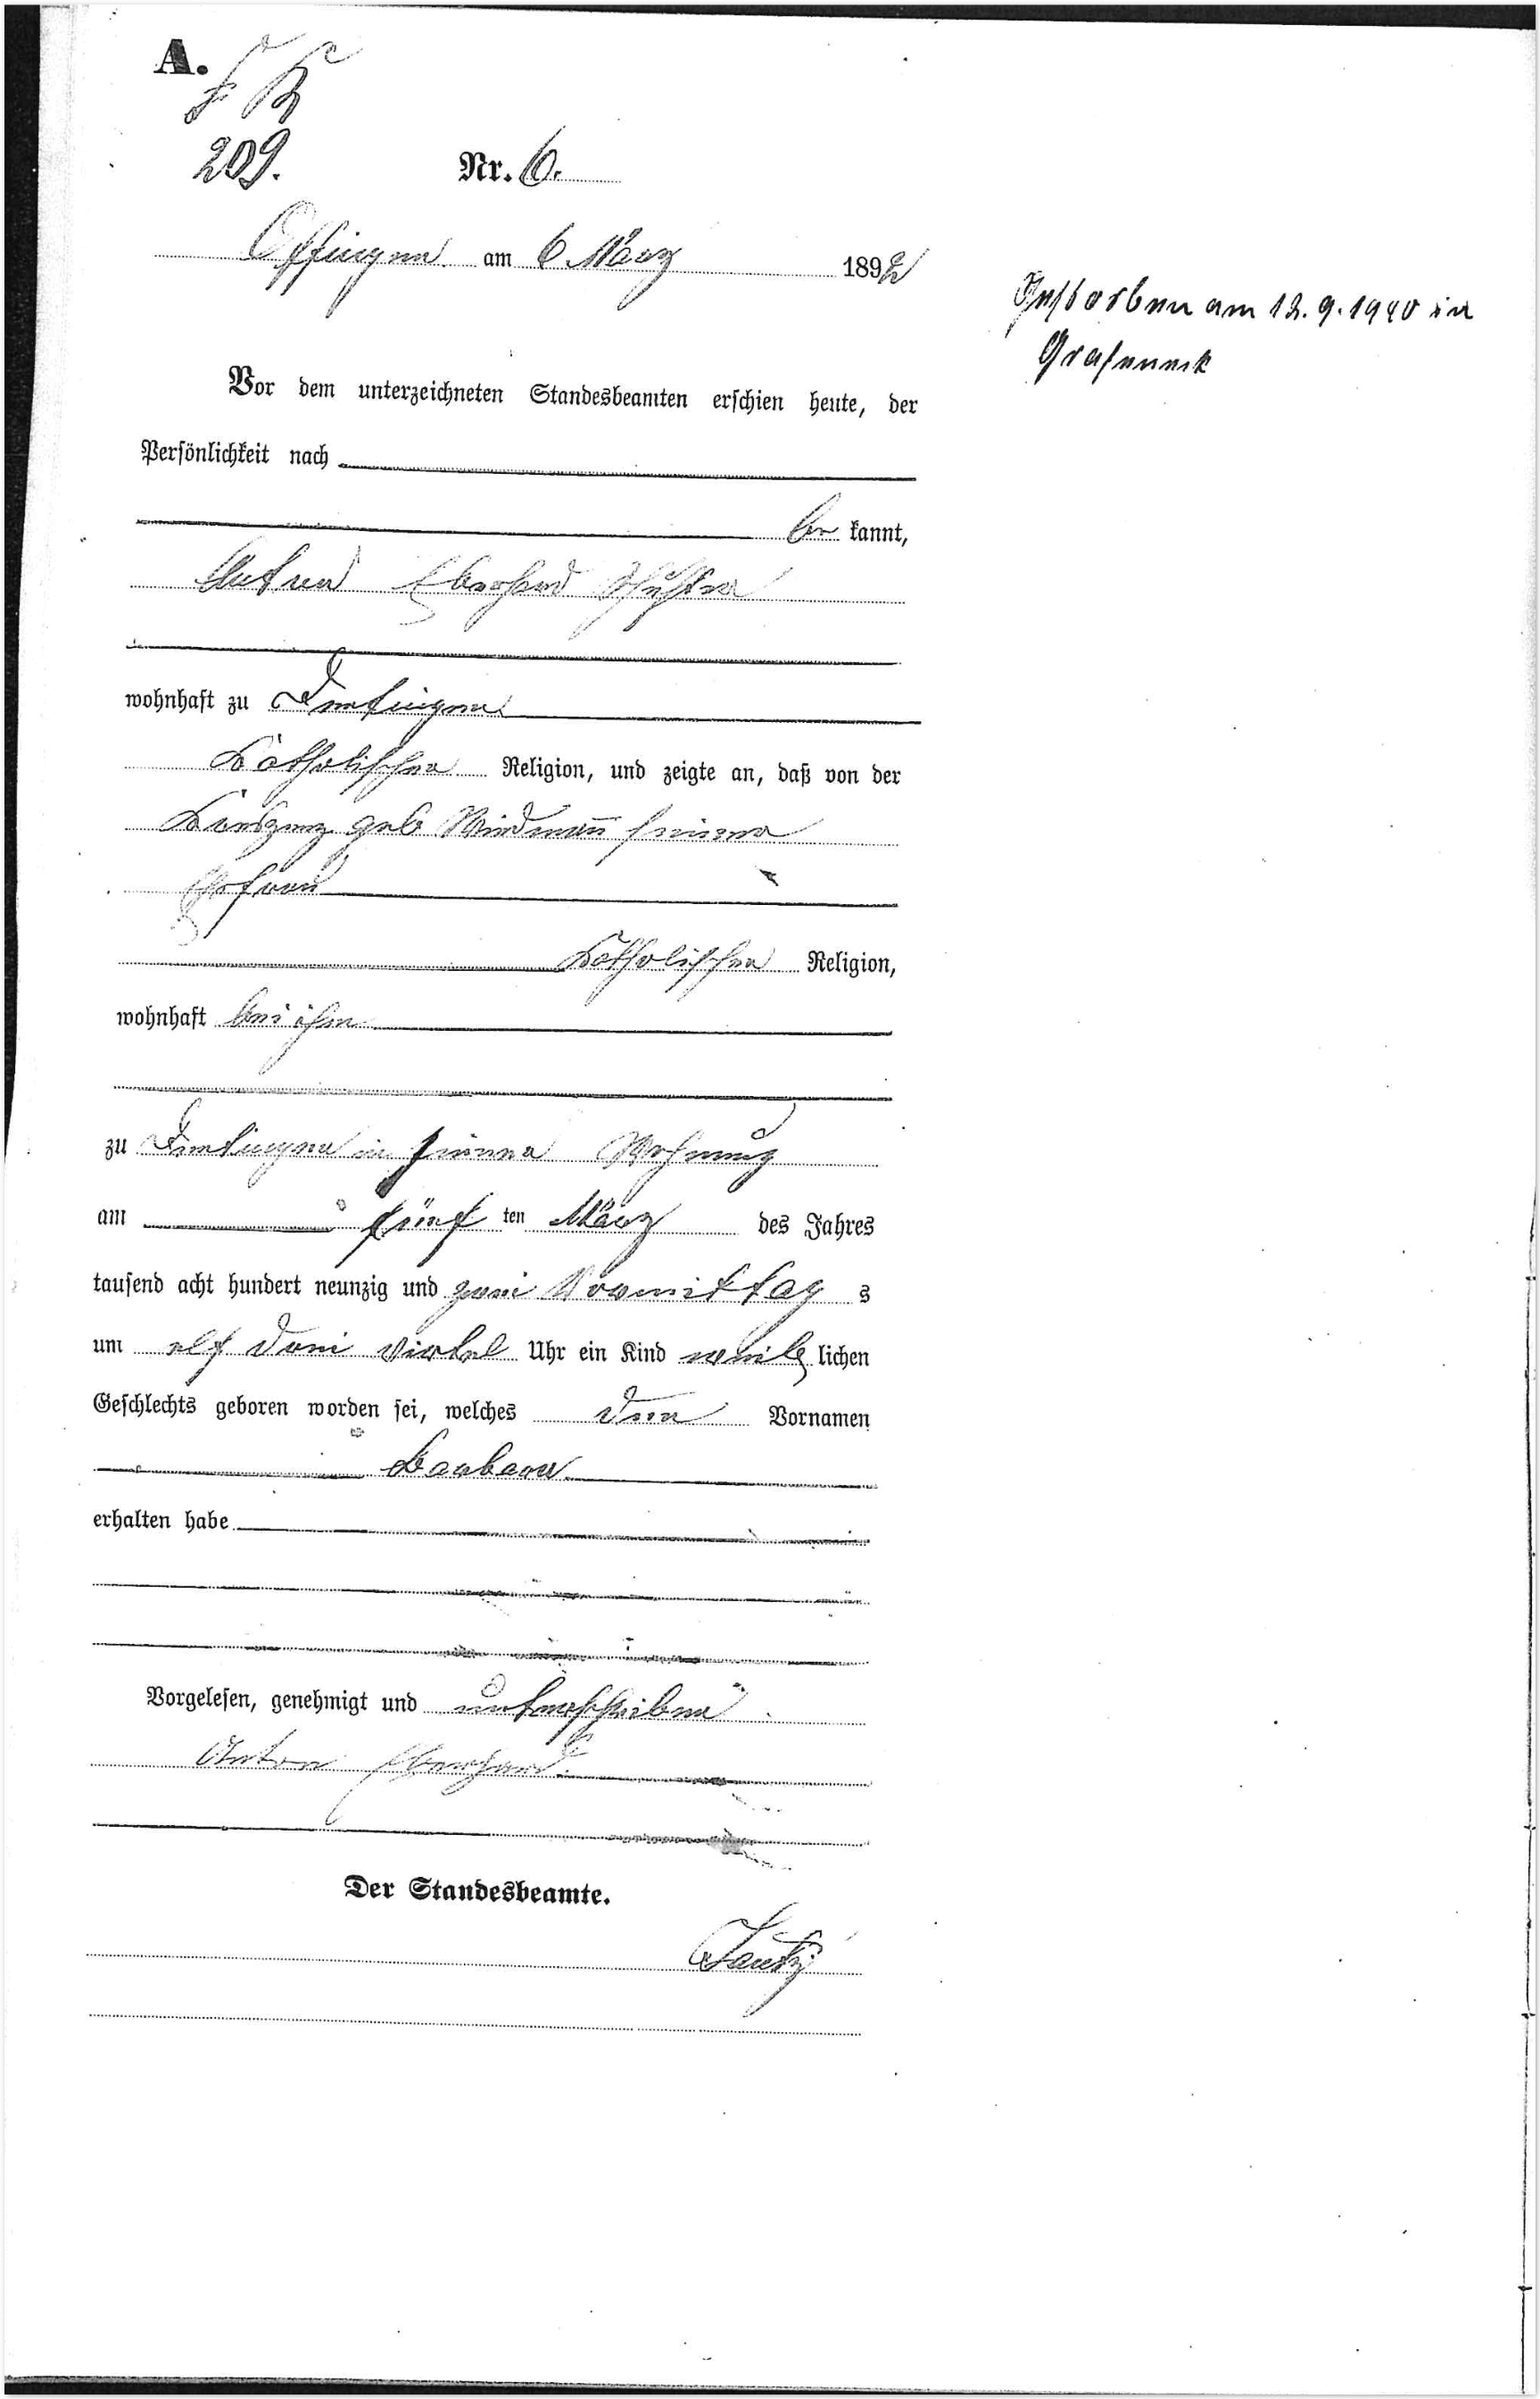 A.
F. R
209.
Nr. 6.
Offingen am 6 März 1892
Gestorben am 12.9.1940 in
Grafeneck
Vor dem unterzeichneten Standesbeamten erschien heute, der
Persönlichkeit nach
be kannt,
Anton Eberhard Schuster
wohnhaft zu Dentingen
Katholischer Religion, und zeigte an, daß von der
geb Widman̄ seiner
Ehefrau
Katholischer Religion,
wohnhaft bei ihm
zu Dentingen in seiner Wohnung
am fünf ten März des Jahres
tausend acht hundert neunzig und zwei Vormittag s
um elf drei Viertel Uhr ein Kind weib lichen
Geschlechts geboren worden sei, welches den Vornamen
Barbara
erhalten habe
Vorgelesen, genehmigt und unterschrieben
Anton Eberhard.
Der Standesbeamte.